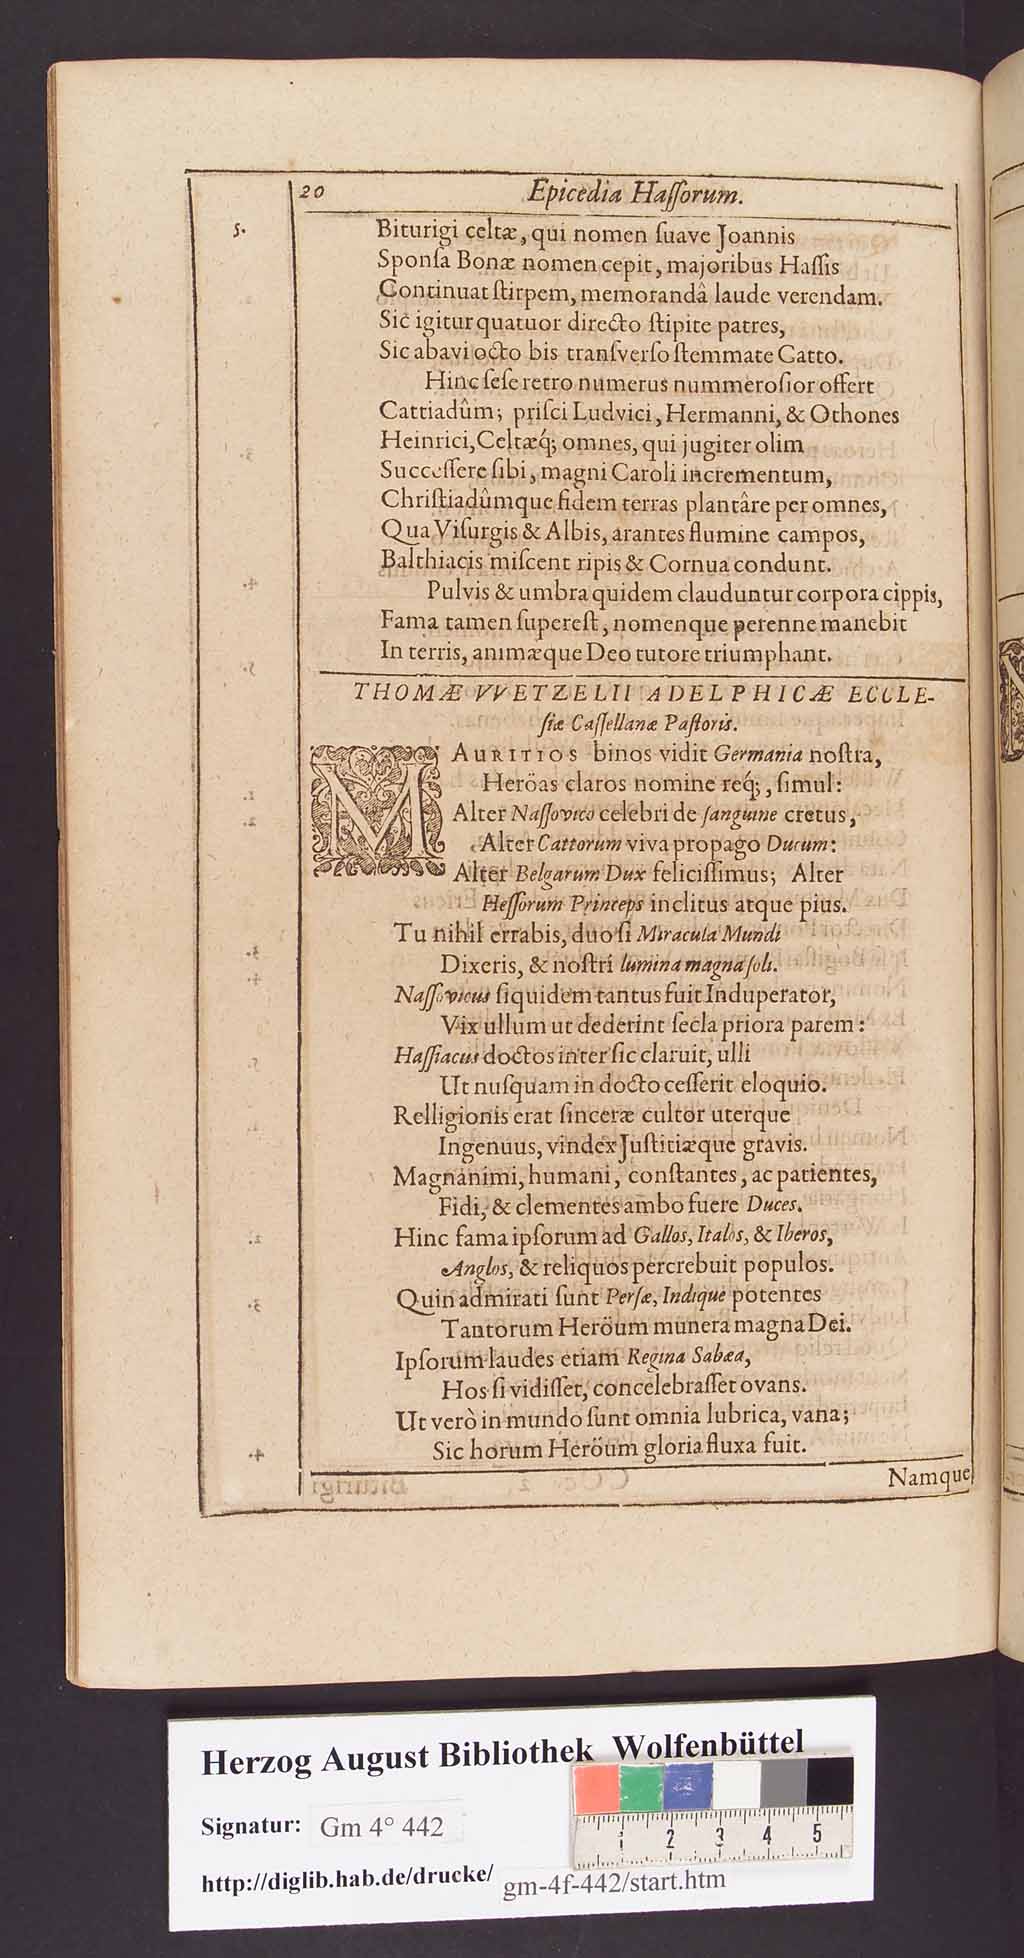 20 Epicedia Haſſorum.
5. Biturigi celtæ, qui nomen ſuave Joannis
Sponſa Bonæ nomen cepit, majoribus Haſſis
Continuat ſtirpem, memorandâ laude verendam.
Sic igitur quatuor directo ſtipite patres,
Sic abavi octo bis tranſverſo ſtemmate Catto.
Hinc ſeſe retro numerus nummeroſior offert
Cattiadûm; priſci Ludvici, Hermanni, & Othones
Heinrici, Celtæq́; omnes, qui jugiter olim
Succeſſere ſibi, magni Caroli incrementum,
Chriſtiadûmque fidem terras plantâre per omnes,
Qua Viſurgis & Albis, arantes flumine campos,
Balthiacis miſcent ripis & Cornua condunt.
Pulvis & umbra quidem clauduntur corpora cippis,
Fama tamen ſupereſt, nomenque perenne manebit
In terris, animæque Deo tutore triumphant.
THOMÆ VVETZELII ADELPHICÆ ECCLE-
ſiæ Caſſellanæ Paſtoris.
MAURITIOS binos vidit Germania noſtra,
Heröas claros nomine req́;, ſimul:
Alter Naſſovico celebri de ſanguine cretus,
Alter Cattorum viva propago Ducum:
Alter Belgarum Dux feliciſſimus; Alter
Heſſorum Princeps inclitus atque pius.
Tu nihil errabis, duo ſi Miracula Mundi
Dixeris, & noſtri lumina magna ſoli.
Naſſovicus ſiquidem tantus fuit Induperator,
Vix ullum ut dederint ſecla priora parem:
Haſſiacus doctos inter ſic claruit, ulli
Ut nuſquam in docto ceſſerit eloquio.
Relligionis erat ſinceræ cultor uterque
Ingenuus, vindex Juſtitiæque gravis.
Magnanimi, humani, conſtantes, ac patientes,
Fidi, & clementes ambo fuere Duces.
Hinc fama ipſorum ad Gallos, Italos, & Iberos,
Anglos, & reliquos percrebuit populos.
Quin admirati ſunt Perſæ, Indique potentes
Tantorum Heröum munera magna Dei.
Ipſorum laudes etiam Regina Sabæa,
Hos ſi vidiſſet, concelebraſſet ovans.
Ut verò in mundo ſunt omnia lubrica, vana;
Sic horum Heröum gloria fluxa fuit.
Namque
Herzog August Bibliothek Wolfenbüttel
Signatur: Gm 4° 442
http://diglib.hab.de/drucke/ gm-4f-442/start.htm
1 2 3 4 5